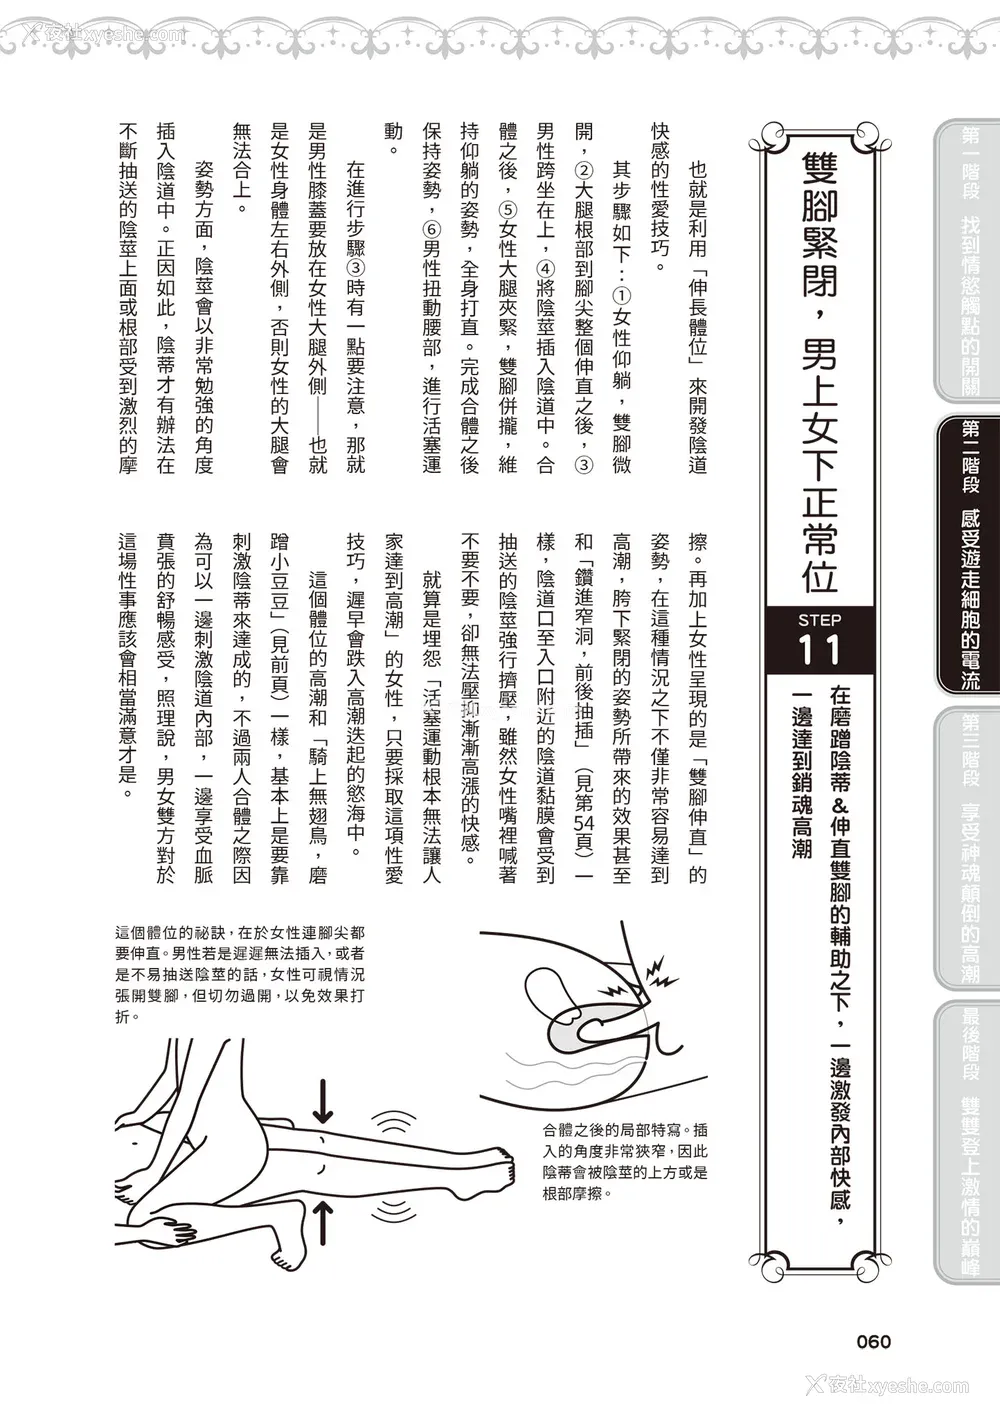 夜社xyeshe.com
夜社xyeshe.com
第一階段 找到情慾觸點的開關
第二階段 感受遊走細胞的電流
第三階段 享受神魂顛倒的高潮
最後階段 雙雙登上激情的巔峰
雙腳緊閉，男上女下正常位
STEP
11
在磨蹭陰蒂&伸直雙腳的輔助之下，一邊激發內部快感，
一邊達到銷魂高潮
也就是利用「伸長體位」來開發陰道
快感的性愛技巧。
其步驟如下：①女性仰躺，雙腳微
開，②大腿根部到腳尖整個伸直之後，③
男性跨坐在上，④將陰莖插入陰道中。合
體之後，⑤女性大腿夾緊，雙腳併攏，維
持仰躺的姿勢，全身打直。完成合體之後
保持姿勢，⑥男性扭動腰部，進行活塞運
動。
在進行步驟③時有一點要注意，那就
是男性膝蓋要放在女性大腿外側——也就
是女性身體左右外側，否則女性的大腿會
無法合上。
姿勢方面，陰莖會以非常勉強的角度
插入陰道中。正因如此，陰蒂才有辦法在
不斷抽送的陰莖上面或根部受到激烈的摩
擦。再加上女性呈現的是「雙腳伸直」的
姿勢，在這種情況之下不僅非常容易達到
高潮，胯下緊閉的姿勢所帶來的效果甚至
和「鑽進窄洞，前後抽插」（見第54頁）一
樣，陰道口至入口附近的陰道黏膜會受到
抽送的陰莖強行擠壓，雖然女性嘴裡喊著
不要不要，卻無法壓抑漸漸高漲的快感。
就算是埋怨「活塞運動根本無法讓人
家達到高潮」的女性，只要採取這項性愛
技巧，遲早會跌入高潮迭起的慾海中。
這個體位的高潮和「騎上無翅鳥，磨
蹭小豆豆」（見前頁）一樣，基本上是要靠
刺激陰蒂來達成的，不過兩人合體之際因
為可以一邊刺激陰道內部，一邊享受血脈
賁張的舒暢感受，照理說，男女雙方對於
這場性事應該會相當滿意才是。
這個體位的祕訣，在於女性連腳尖都
要伸直。男性若是遲遲無法插入，或者
是不易抽送陰莖的話，女性可視情況
張開雙腳，但切勿過開，以免效果打
折。
合體之後的局部特寫。插
入的角度非常狹窄，因此
陰蒂會被陰莖的上方或是
根部摩擦。
060
夜社xyeshe.com